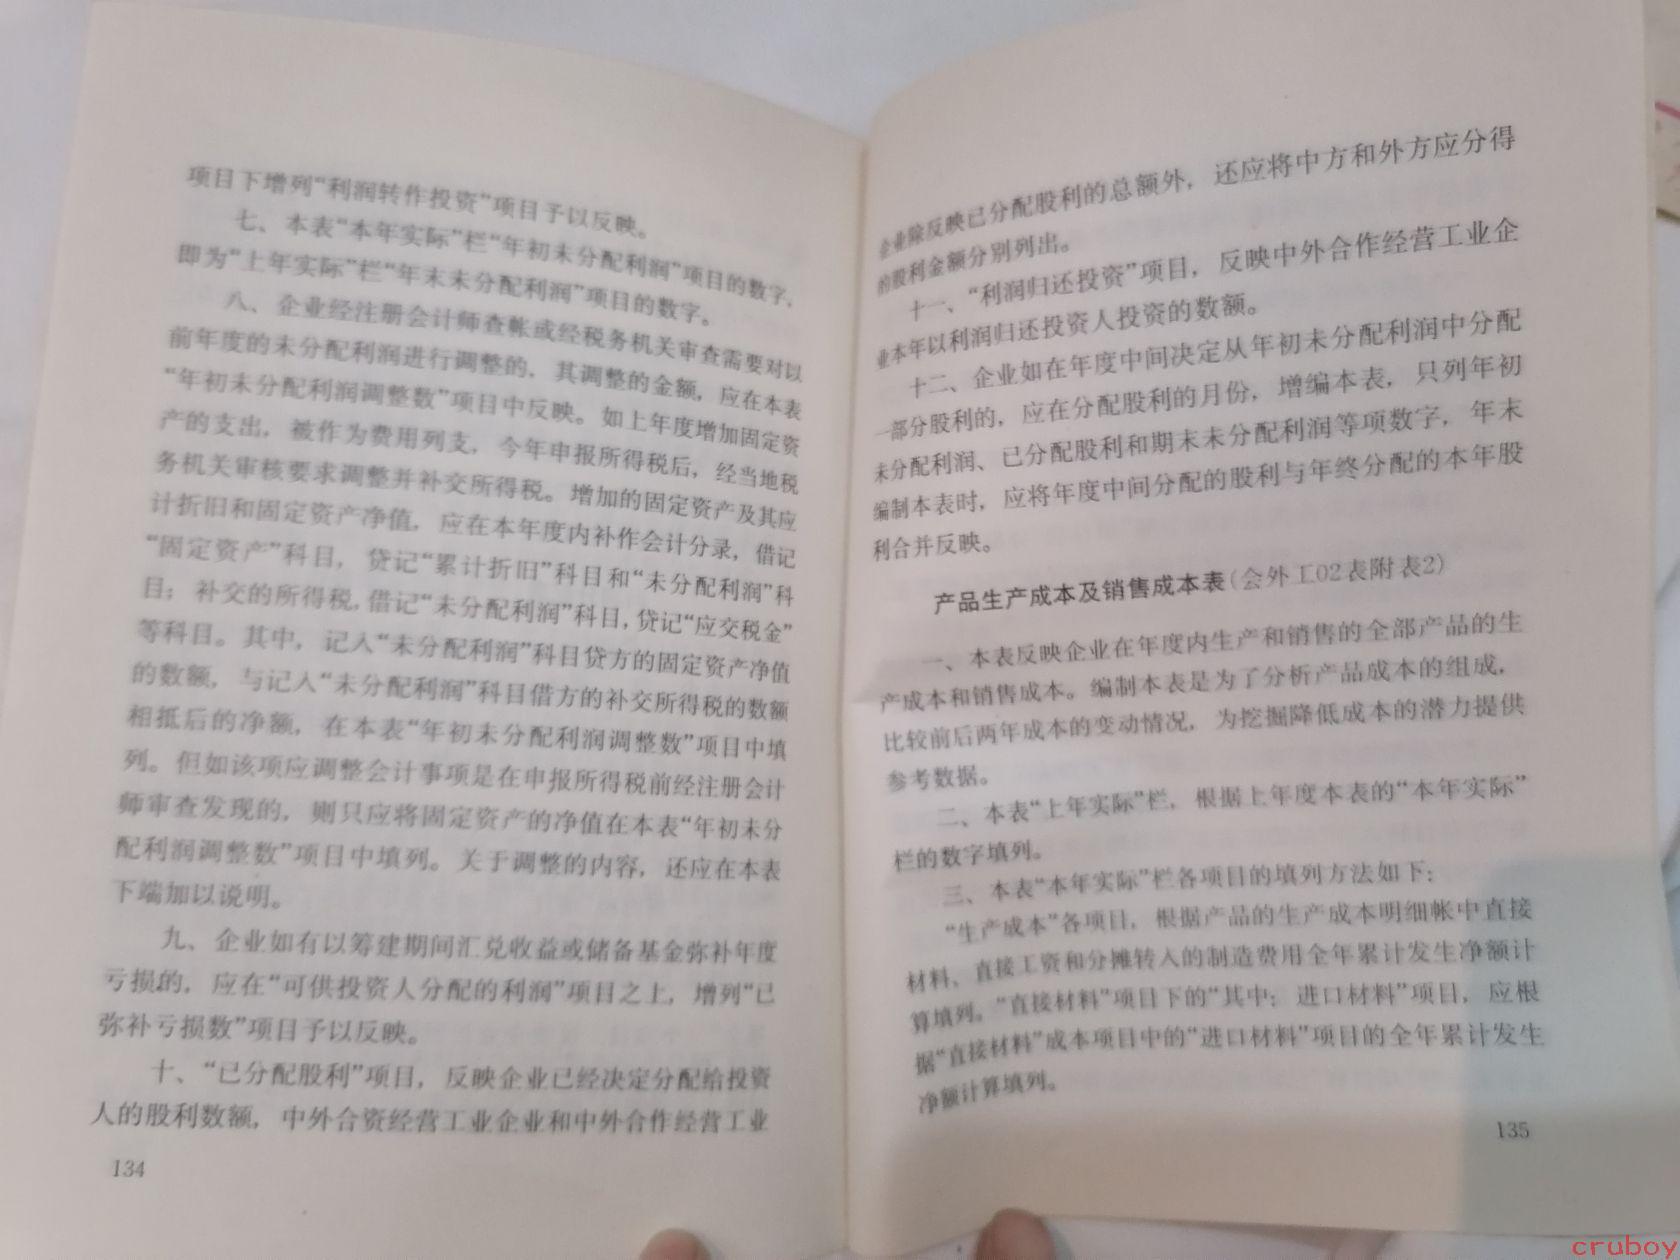 项目下增列“利润转作投资”项目予以反映。
七、本表“本年实际”栏“年初未分配利润”项目的数字，
即为“上年实际”栏“年末未分配利润”项目的数字。
八、企业经注册会计师查帐或经税务机关审查需要对以
前年度的未分配利润进行调整的，其调整的金额，应在本表
“年初未分配利润调整数”项目中反映。如上年度增加固定资
产的支出，被作为费用列支，今年申报所得税后，经当地税
务机关审核要求调整并补交所得税。增加的固定资产及其应
计折旧和固定资产净值，应在本年度内补作会计分录，借记
“固定资产”科目，贷记“累计折旧”科目和“未分配利润”科
目；补交的所得税，借记“未分配利润”科目，贷记“应交税金”
等科目。其中，记入“未分配利润”科目贷方的固定资产净值
的数额，与记入“未分配利润”科目借方的补交所得税的数额
相抵后的净额，在本表“年初未分配利润调整数”项目中填
列。但如该项应调整会计事项是在申报所得税前经注册会计
师审查发现的，则只应将固定资产的净值在本表“年初未分
配利润调整数”项目中填列。关于调整的内容，还应在本表
下端加以说明。
九、企业如有以筹建期间汇兑收益或储备基金弥补年度
亏损的，应在“可供投资人分配的利润”项目之上，增列“已
弥补亏损数”项目予以反映。
十、“已分配股利”项目，反映企业已经决定分配给投资
人的股利数额，中外合资经营工业企业和中外合作经营工业
134
企业除反映已分配股利的总额外，还应将中方和外方应分得
的股利金额分别列出。
十一、“利润归还投资”项目，反映中外合作经营工业企
业本年以利润归还投资人投资的数额。
十二、企业如在年度中间决定从年初未分配利润中分配
一部分股利的，应在分配股利的月份，增编本表，只列年初
未分配利润、已分配股利和期末未分配利润等项数字，年末
编制本表时，应将年度中间分配的股利与年终分配的本年股
利合并反映。
产品生产成本及销售成本表(会外工02表附表2)
一、本表反映企业在年度内生产和销售的全部产品的生
产成本和销售成本。编制本表是为了分析产品成本的组成，
比较前后两年成本的变动情况，为挖掘降低成本的潜力提供
参考数据。
二、本表“上年实际”栏，根据上年度本表的“本年实际”
栏的数字填列。
三、本表“本年实际”栏各项目的填列方法如下：
“生产成本”各项目，根据产品的生产成本明细帐中直接
材料、直接工资和分摊转入的制造费用全年累计发生净额计
算填列。“直接材料”项目下的“其中：进口材料”项目，应根
据“直接材料”成本项目中的“进口材料”项目的全年累计发生
净额计算填列。
135
cruboy